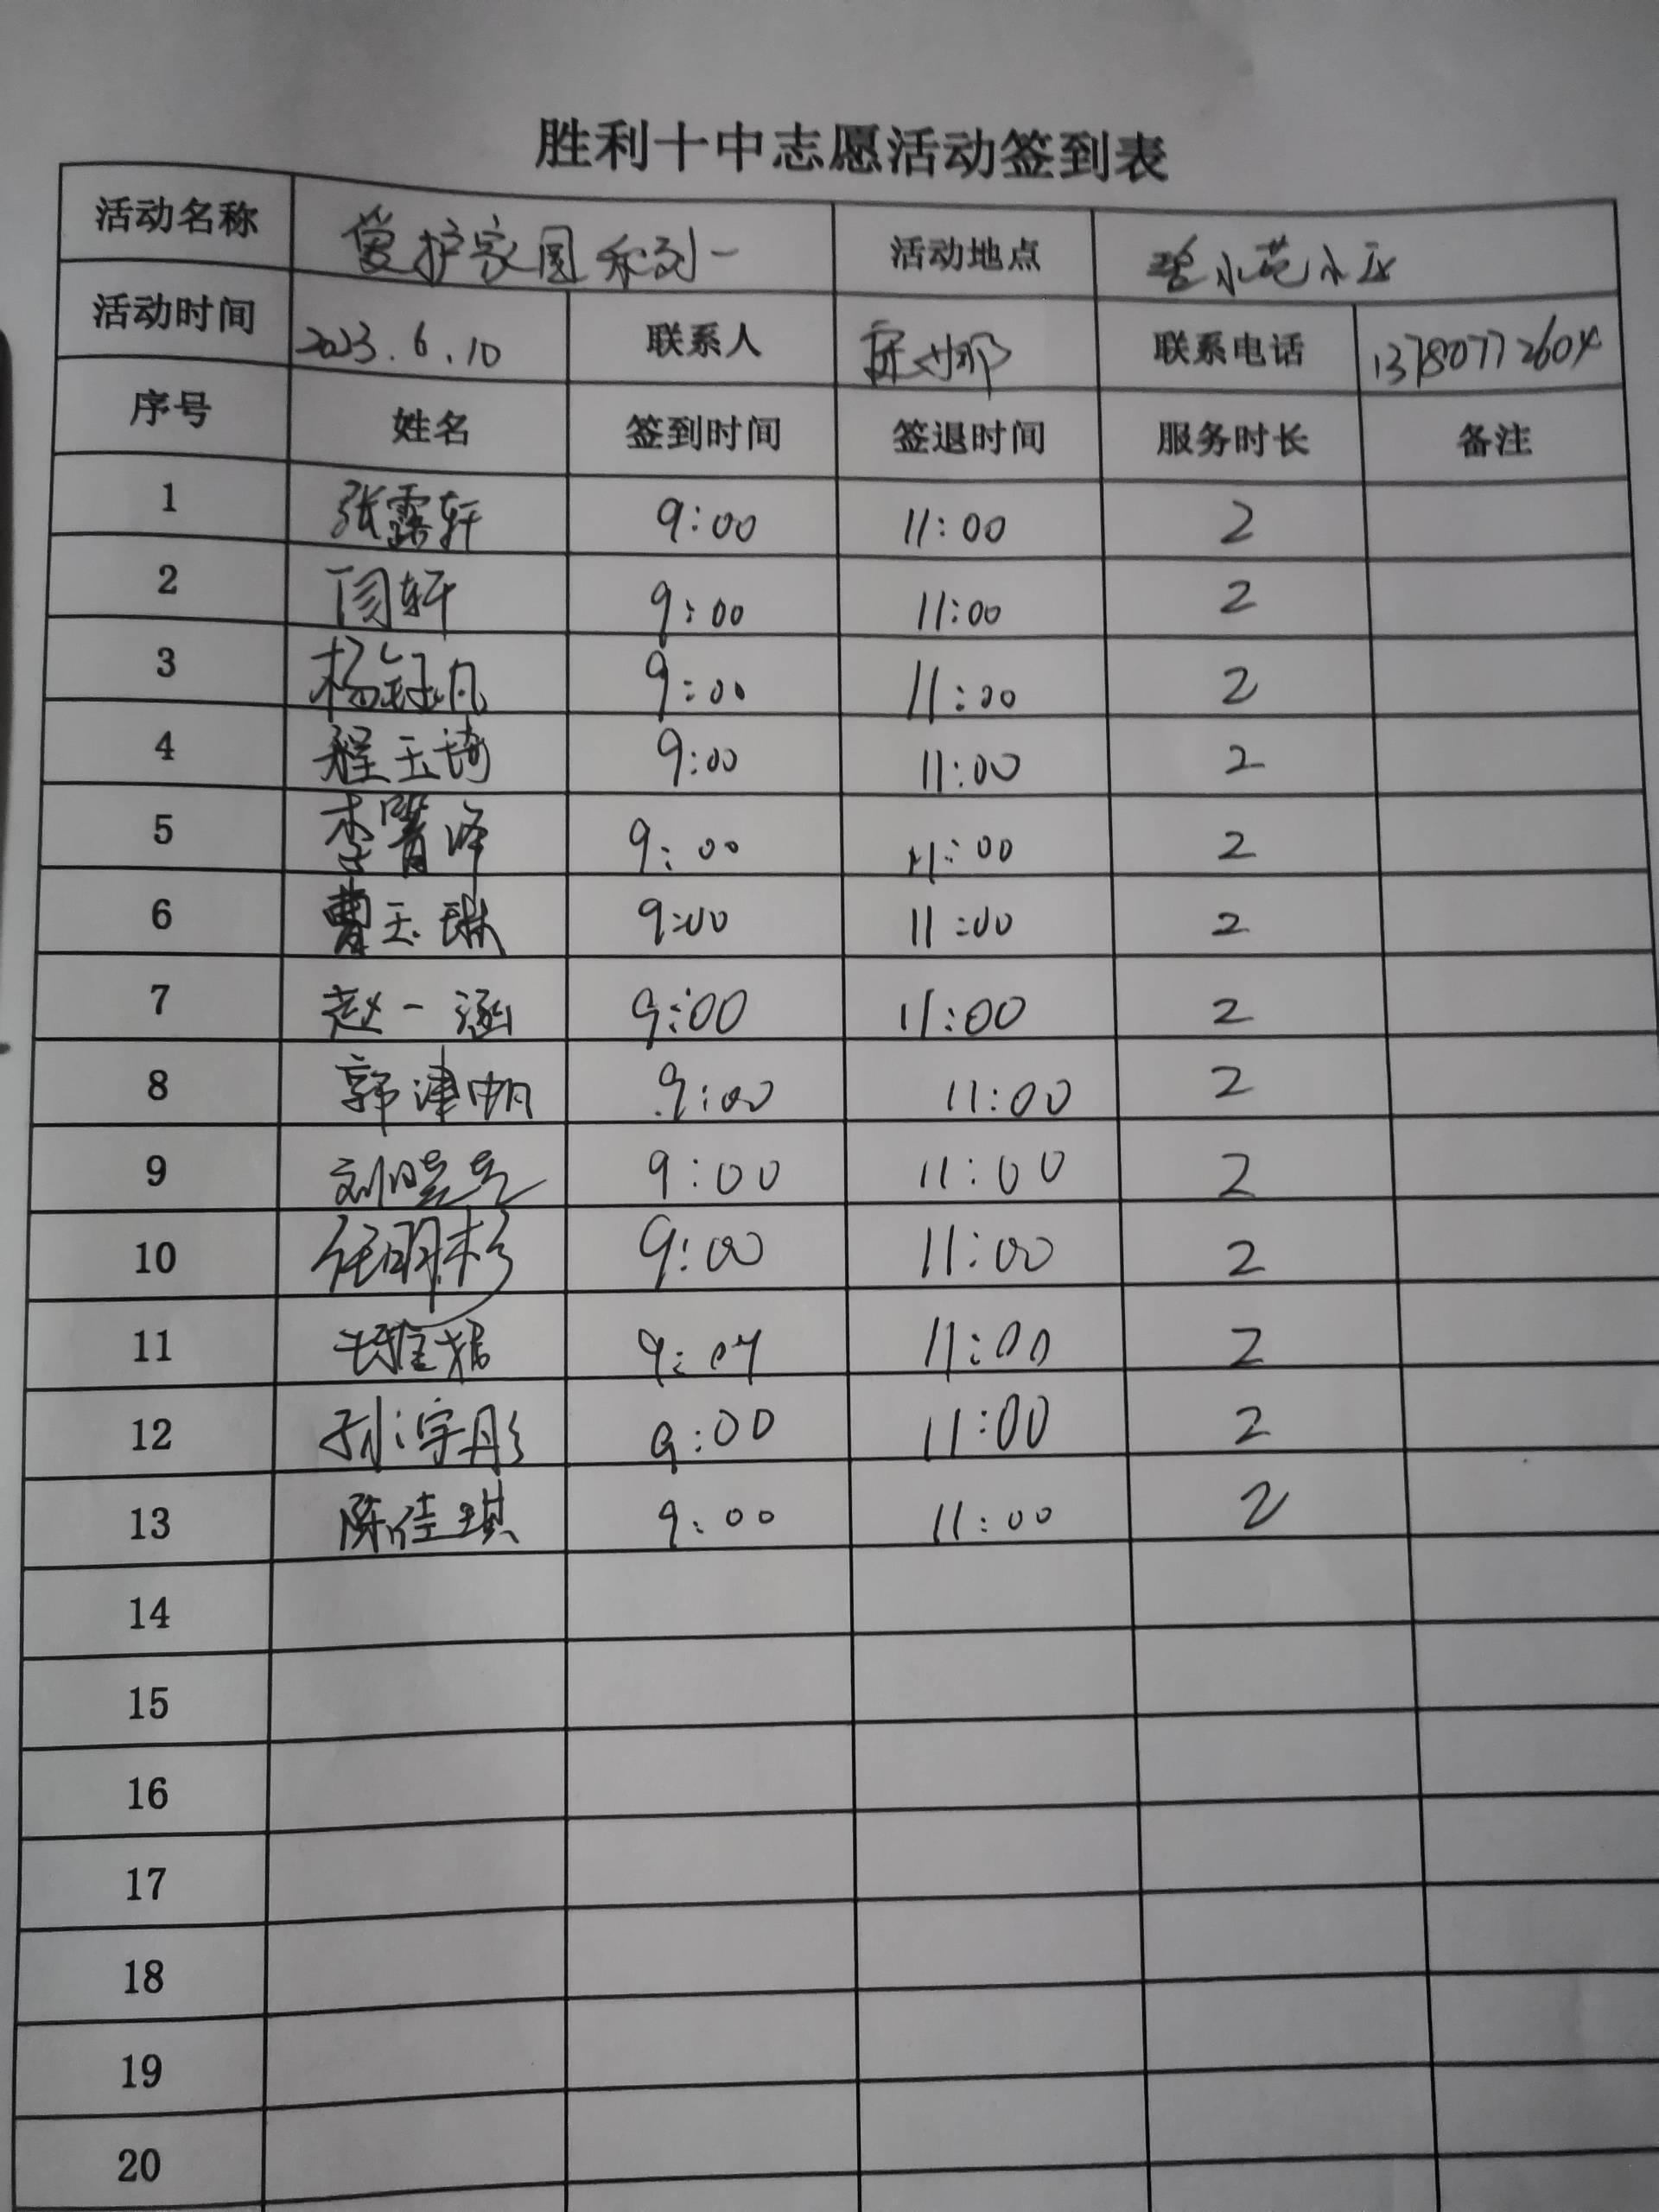 胜利十中志愿活动签到表
活动名称 爱护家园系列一 活动地点 碧水苑小区
活动时间 2023.6.10 联系人 联系电话 13780772604
序号 姓名 签到时间 签退时间 服务时长 备注
1 张露轩 9:00 11:00 2
2 闫轩 9:00 11:00 2
3 杨钰凡 9:00 11:00 2
4 程玉琦 9:00 11:00 2
5 李 9:00 11:00 2
6 曹玉琳 9:00 11:00 2
7 赵一涵 9:00 11:00 2
8 郭津帆 9:00 11:00 2
9 9:00 11:00 2
10 任明杉 9:00 11:00 2
11 11:00 2
12 9:00 11:00 2
13 陈佳琪 9:00 11:00 2
14
15
16
17
18
19
20